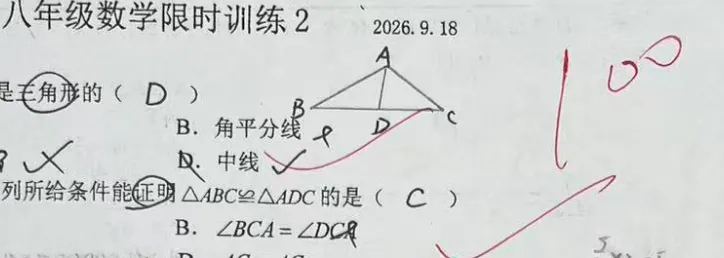 八年级数学限时训练 2 2026.9.18
100
A
是三角形的（ D ）
B D C
B. 角平分线
D. 中线 ✓
列所给条件能证明△ABC≌△ADC 的是（ C ）
B. ∠BCA=∠DCA